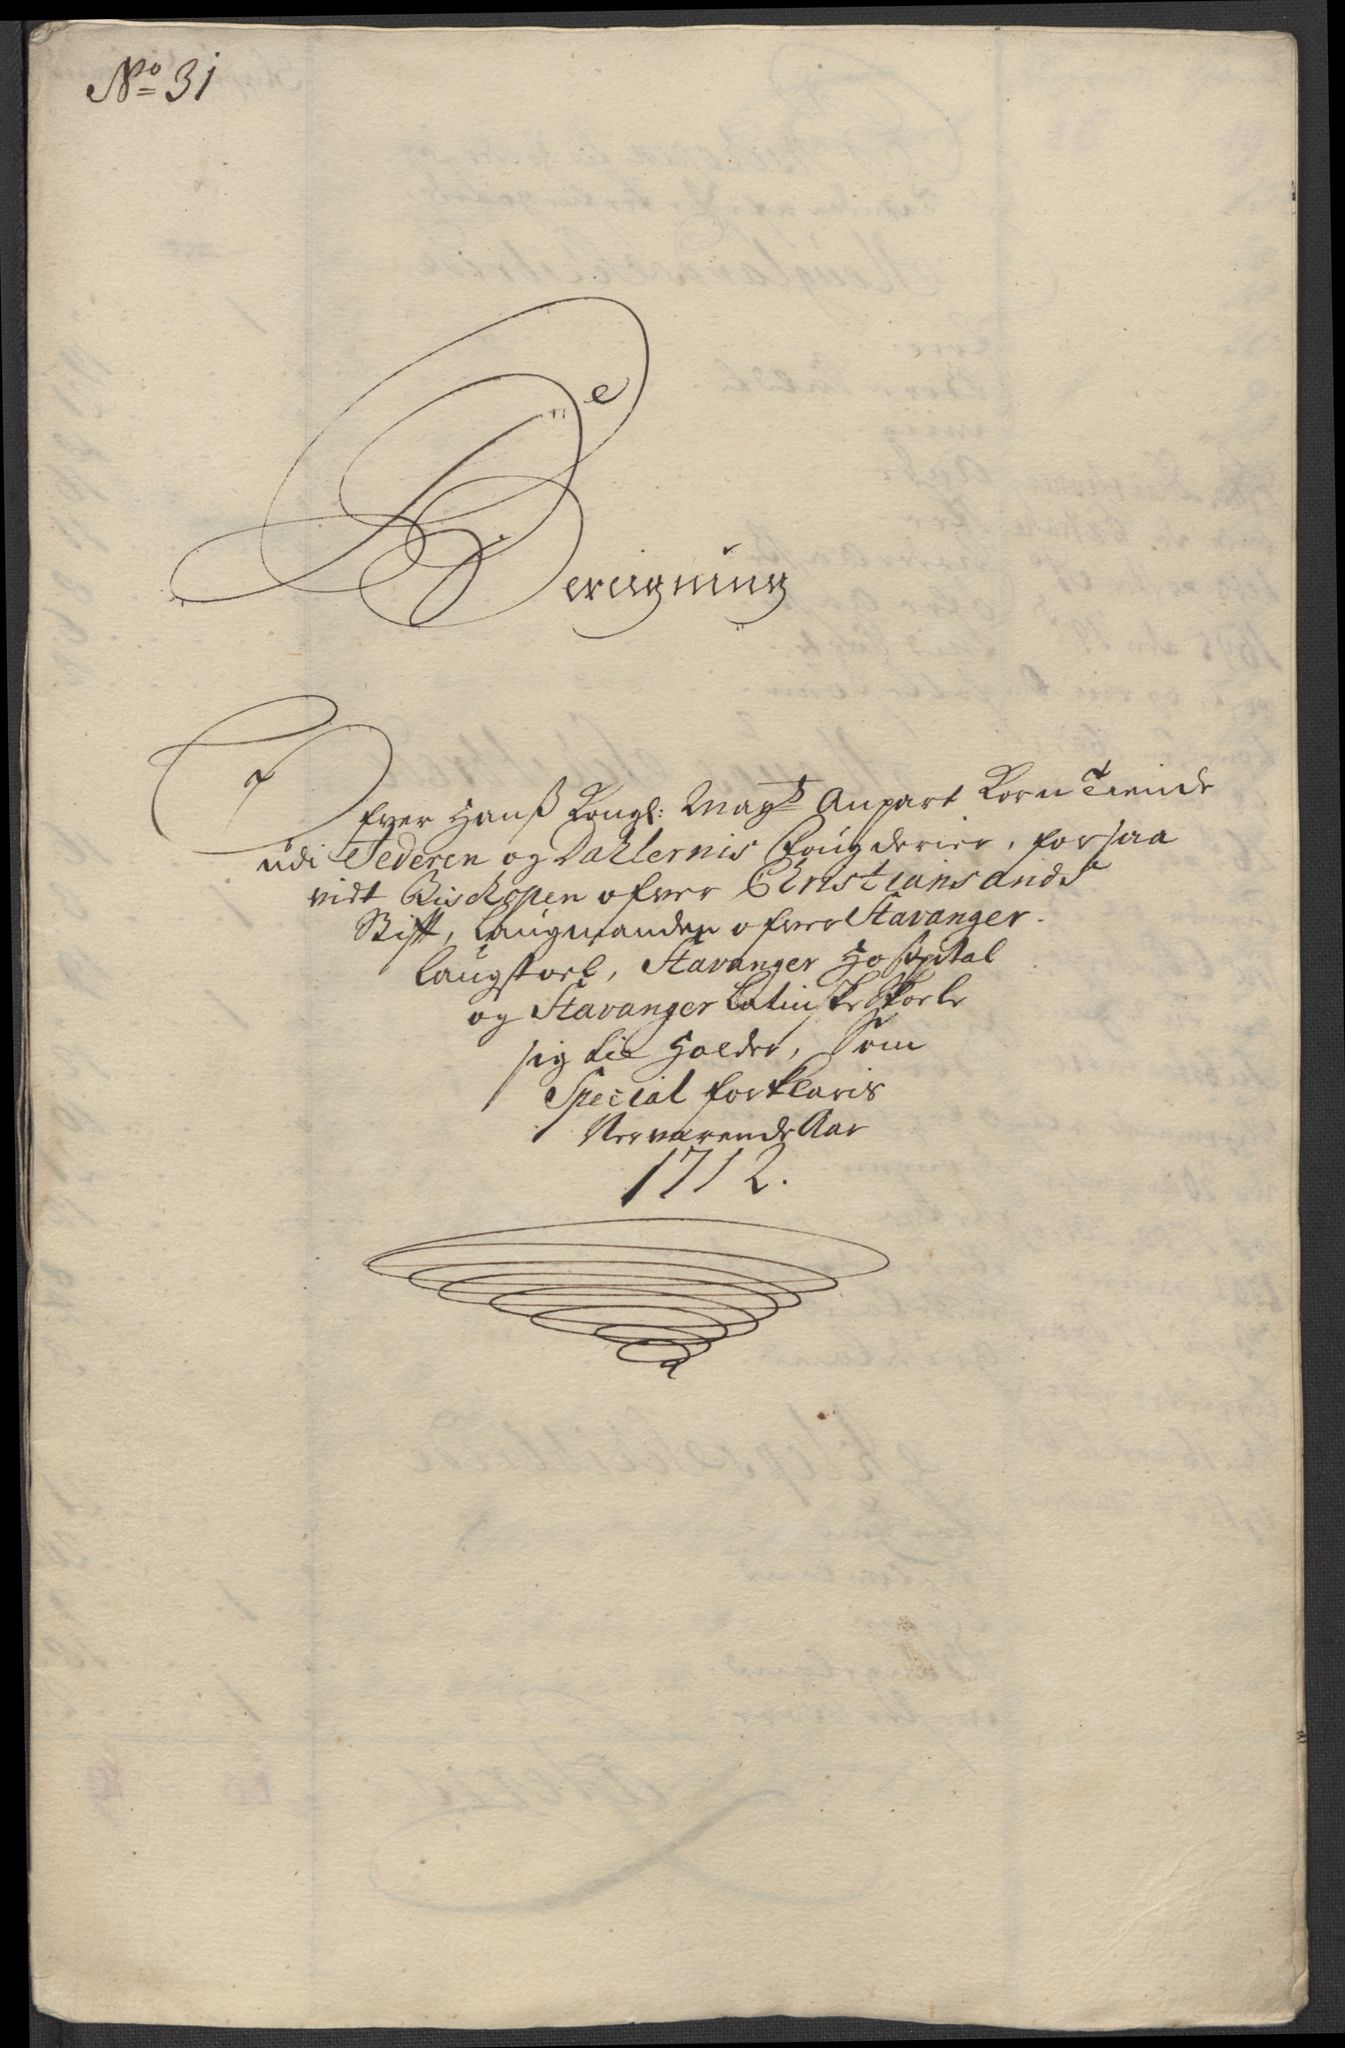 No 31
Beregning
Ofver Hanß Kongl: Mayts Anpart Korn Tiende
udi Jederen og Dahlernis Fougderier, forsaa
vidt Bischopen ofver Christiansands
Stift, Laugmanden ofver Stavanger
Laugstoel, Stavanger Hospital
og Stavanger Latinske Skoele
sig til Holder, Som
Special forklaris
Nerværende Aar
1712.